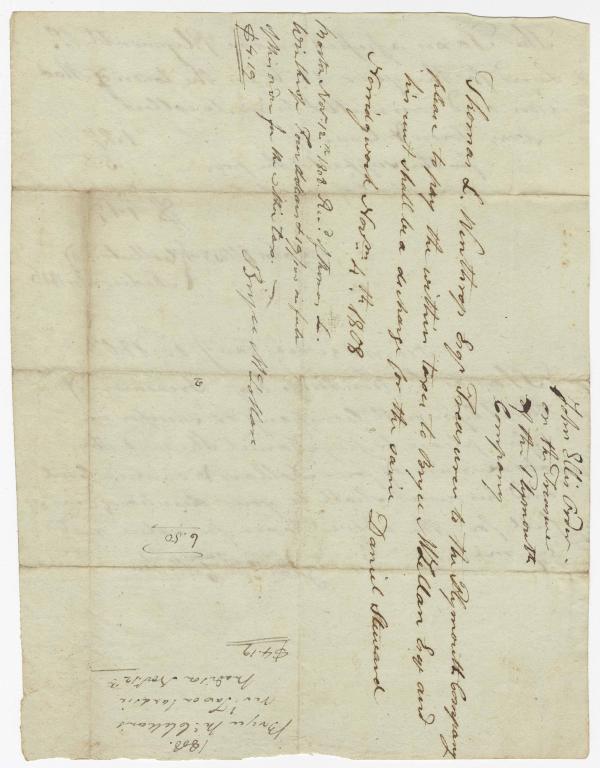 John Ellis Order
on the Treasurer
of the Plymouth
Company
Thomas L. Winthrop Esqr Treasurer to the Plymouth Company
please to pay the within taxes to Bryce McLellan Esq and
his rect shall be a discharge for the same
Daniel Steward
Norridgwock Novr 4th 1808
Boston Novr 12th 1808 Recd of Thomas L.
Winthrop Four dollars & 19/100 in full
of this order for the within taxes.
$4.19
Bryce McLellan
6.50
$4.19
1808.
Bryce McClellan's
for Taxes
Novr 12